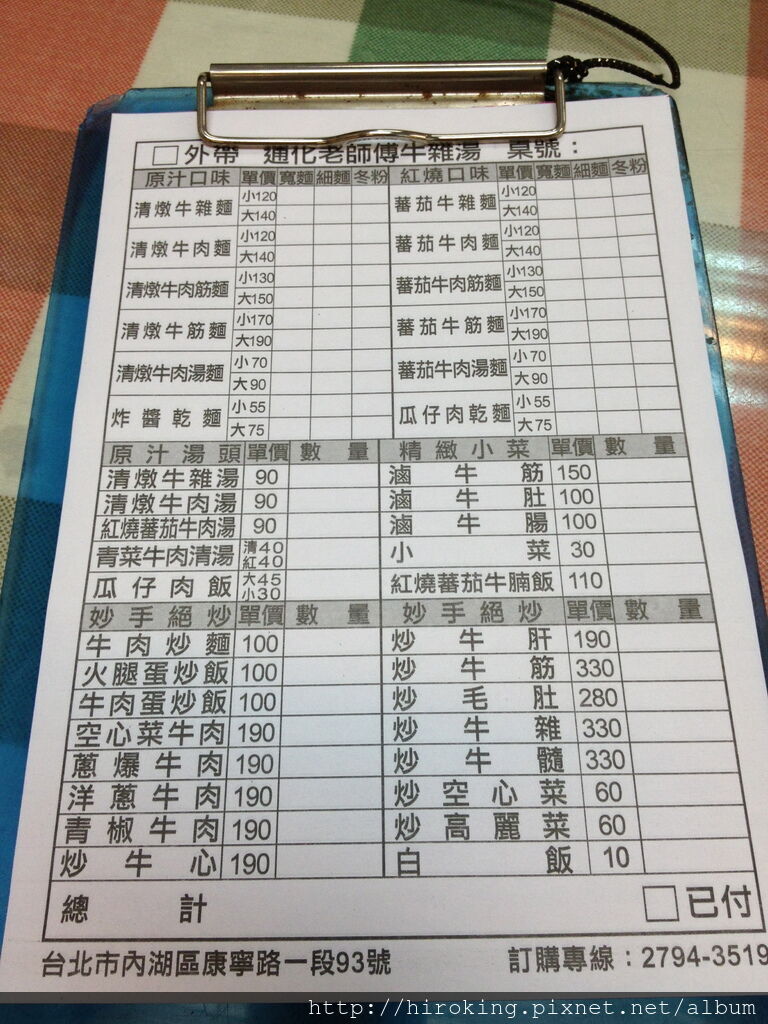 □外帶 通化老師傅牛雜湯 桌號：
原汁口味 單價 寬麵 細麵 冬粉 紅燒口味 單價 寬麵 細麵 冬粉
清燉牛雜麵 小120 大140 蕃茄牛雜麵 小120 大140
清燉牛肉麵 小120 大140 蕃茄牛肉麵 小120 大140
清燉牛肉筋麵 小130 大150 蕃茄牛肉筋麵 小130 大150
清燉牛筋麵 小170 大190 蕃茄牛筋麵 小170 大190
清燉牛肉湯麵 小70 大90 蕃茄牛肉湯麵 小70 大90
炸醬乾麵 小55 大75 瓜仔肉乾麵 小55 大75
原汁湯頭 單價 數量 精緻小菜 單價 數量
清燉牛雜湯 90 滷牛筋 150
清燉牛肉湯 90 滷牛肚 100
紅燒蕃茄牛肉湯 90 滷牛腸 100
青菜牛肉清湯 清40 紅40 小菜 30
瓜仔肉飯 大45 小30 紅燒蕃茄牛腩飯 110
妙手絕炒 單價 數量 妙手絕炒 單價 數量
牛肉炒麵 100 炒牛肝 190
火腿蛋炒飯 100 炒牛筋 330
牛肉蛋炒飯 100 炒毛肚 280
空心菜牛肉 190 炒牛雜 330
蔥爆牛肉 190 炒牛髓 330
洋蔥牛肉 190 炒空心菜 60
青椒牛肉 190 炒高麗菜 60
炒牛心 190 白飯 10
總計 □已付
台北市內湖區康寧路一段93號 訂購專線：2794-3519
http://hiroking.pixnet.net/album